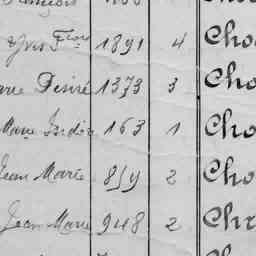 Yves Flor 1891 4 Cho
Marie Désiré 1373 3 Cho
Marie Isidor 163 1 Cho
Jean Marie 859 2 Cho
Jean Marie 948 2 Chr